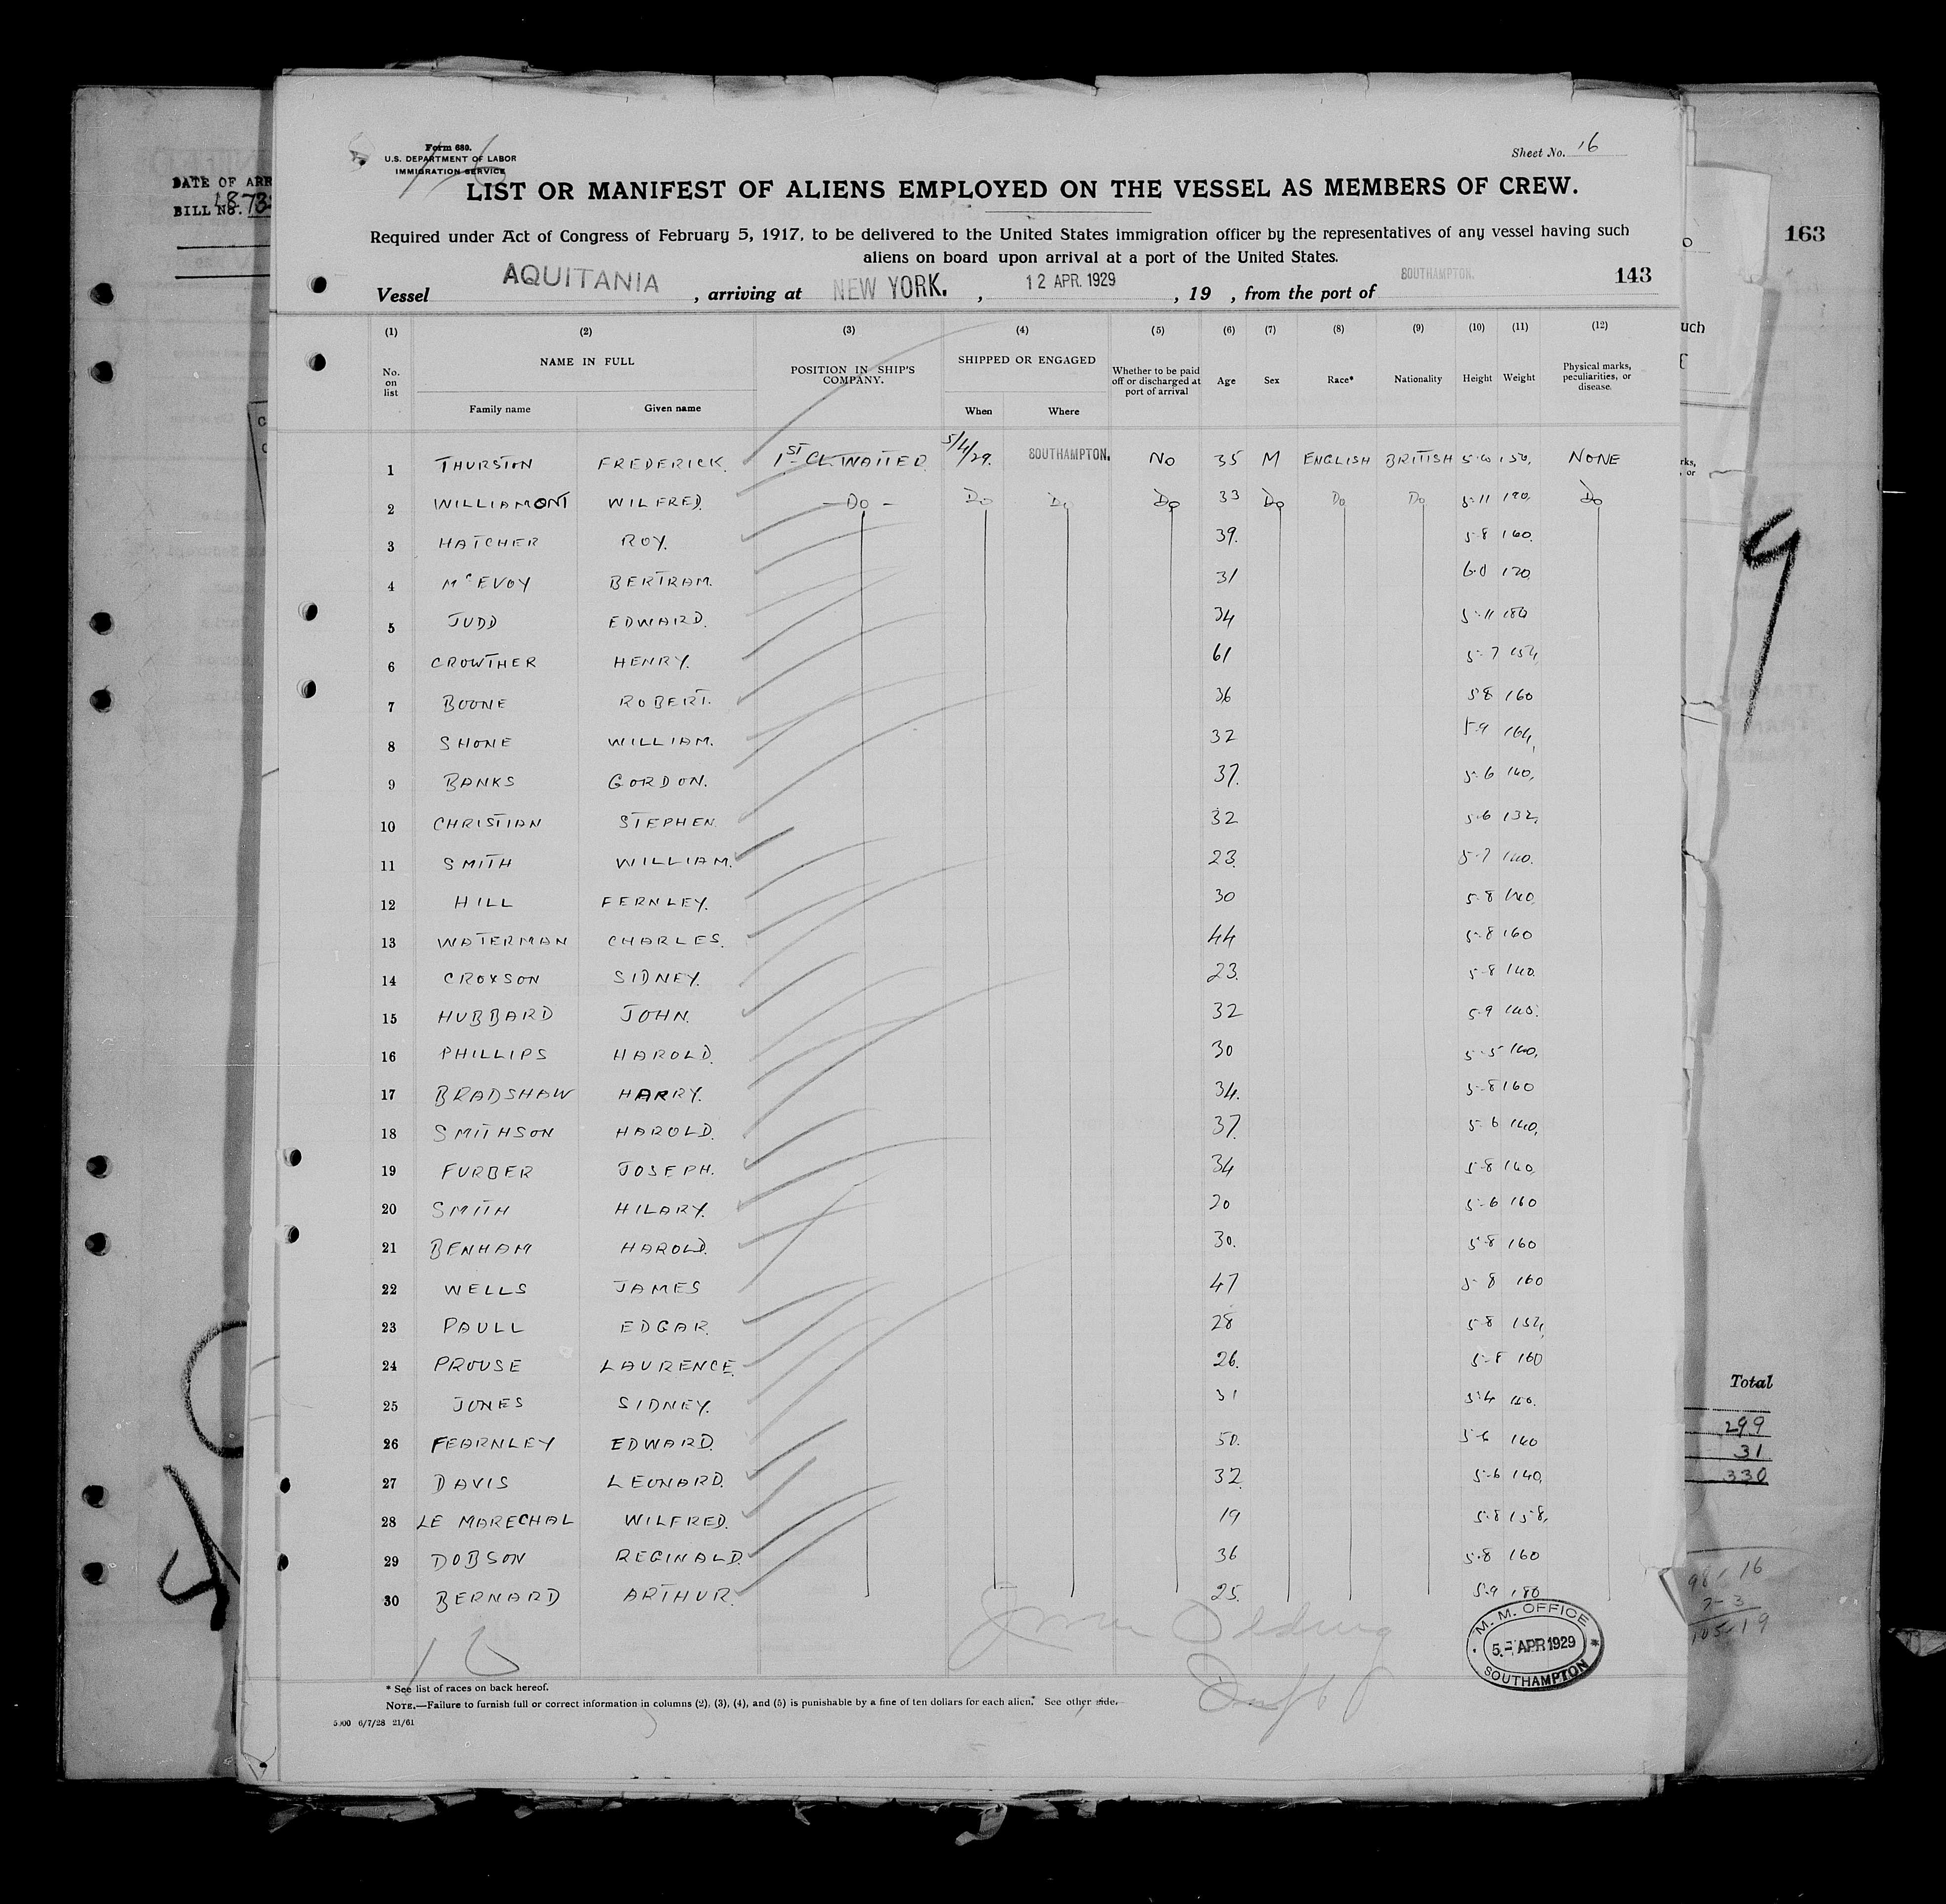 Form 680.
U.S. DEPARTMENT OF LABOR
IMMIGRATION SERVICE
Sheet No. 16
LIST OR MANIFEST OF ALIENS EMPLOYED ON THE VESSEL AS MEMBERS OF CREW.
Required under Act of Congress of February 5, 1917, to be delivered to the United States immigration officer by the representatives of any vessel having such
aliens on board upon arrival at a port of the United States.
143
Vessel AQUITANIA, arriving at NEW YORK., 12 APR. 1929, 19 , from the port of SOUTHAMPTON.
(1) (2) (3) (4) (5) (6) (7) (8) (9) (10) (11) (12)
No. on list NAME IN FULL POSITION IN SHIP'S COMPANY. SHIPPED OR ENGAGED Whether to be paid off or discharged at port of arrival Age Sex Race* Nationality Height Weight Physical marks, peculiarities, or disease.
Family name Given name When Where
1 THURSTON FREDERICK. 1ST CL. WAITER. 5/4/29. SOUTHAMPTON. NO 35 M ENGLISH BRITISH 150, NONE
2 WILLIAMONT WILFRED. - Do - Do Do Do 33 Do Do Do 5-11 Do
3 HATCHER ROY. 39. 5-8 160.
4 McEVOY BERTRAM. 31 6-0
5 JUDD EDWARD. 34 5-11
6 CROWTHER HENRY. 61 5-7 154,
7 BOONE ROBERT. 36 5-8 160
8 SHONE WILLIAM. 32 5-9 164,
9 BANKS GORDON. 37. 5-6 140,
10 CHRISTIAN STEPHEN. 32 5-6 132,
11 SMITH WILLIAM. 23. 5-7 140.
12 HILL FERNLEY. 30 5-8 140,
13 WATERMAN CHARLES. 44 5-8 160
14 CROXSON SIDNEY. 23. 5-8 140.
15 HUBBARD JOHN. 32 5-9 145.
16 PHILLIPS HAROLD. 30 5-5 140,
17 BRADSHAW HARRY. 34. 5-8 160
18 SMITHSON HAROLD. 37. 5-6 140,
19 FURBER JOSEPH. 34 5-8 140,
20 SMITH HILARY. 20 5-6 160
21 BENHAM HAROLD. 30. 5-8 160
22 WELLS JAMES 47 5-8 160
23 PAULL EDGAR. 28 5-8 154,
24 PROUSE LAURENCE. 26. 5-8 160
25 JONES SIDNEY. 31 5-4
26 FEARNLEY EDWARD. 50. 5-6 140
27 DAVIS LEONARD. 32. 5-6 140,
28 LE MARECHAL WILFRED. 19 5-8 158,
29 DOBSON REGINALD. 36 5-8 160
30 BERNARD ARTHUR. 25. 5-9 180
M. M. OFFICE
5 - APR 1929
SOUTHAMPTON
* See list of races on back hereof.
NOTE.—Failure to furnish full or correct information in columns (2), (3), (4), and (5) is punishable by a fine of ten dollars for each alien. See other side.
5000 6/7/28 21/61
DATE OF ARR
BILL NO. 1873
163
uch
Total
299
31
330
98 / 16
7 - 3
105 - 19